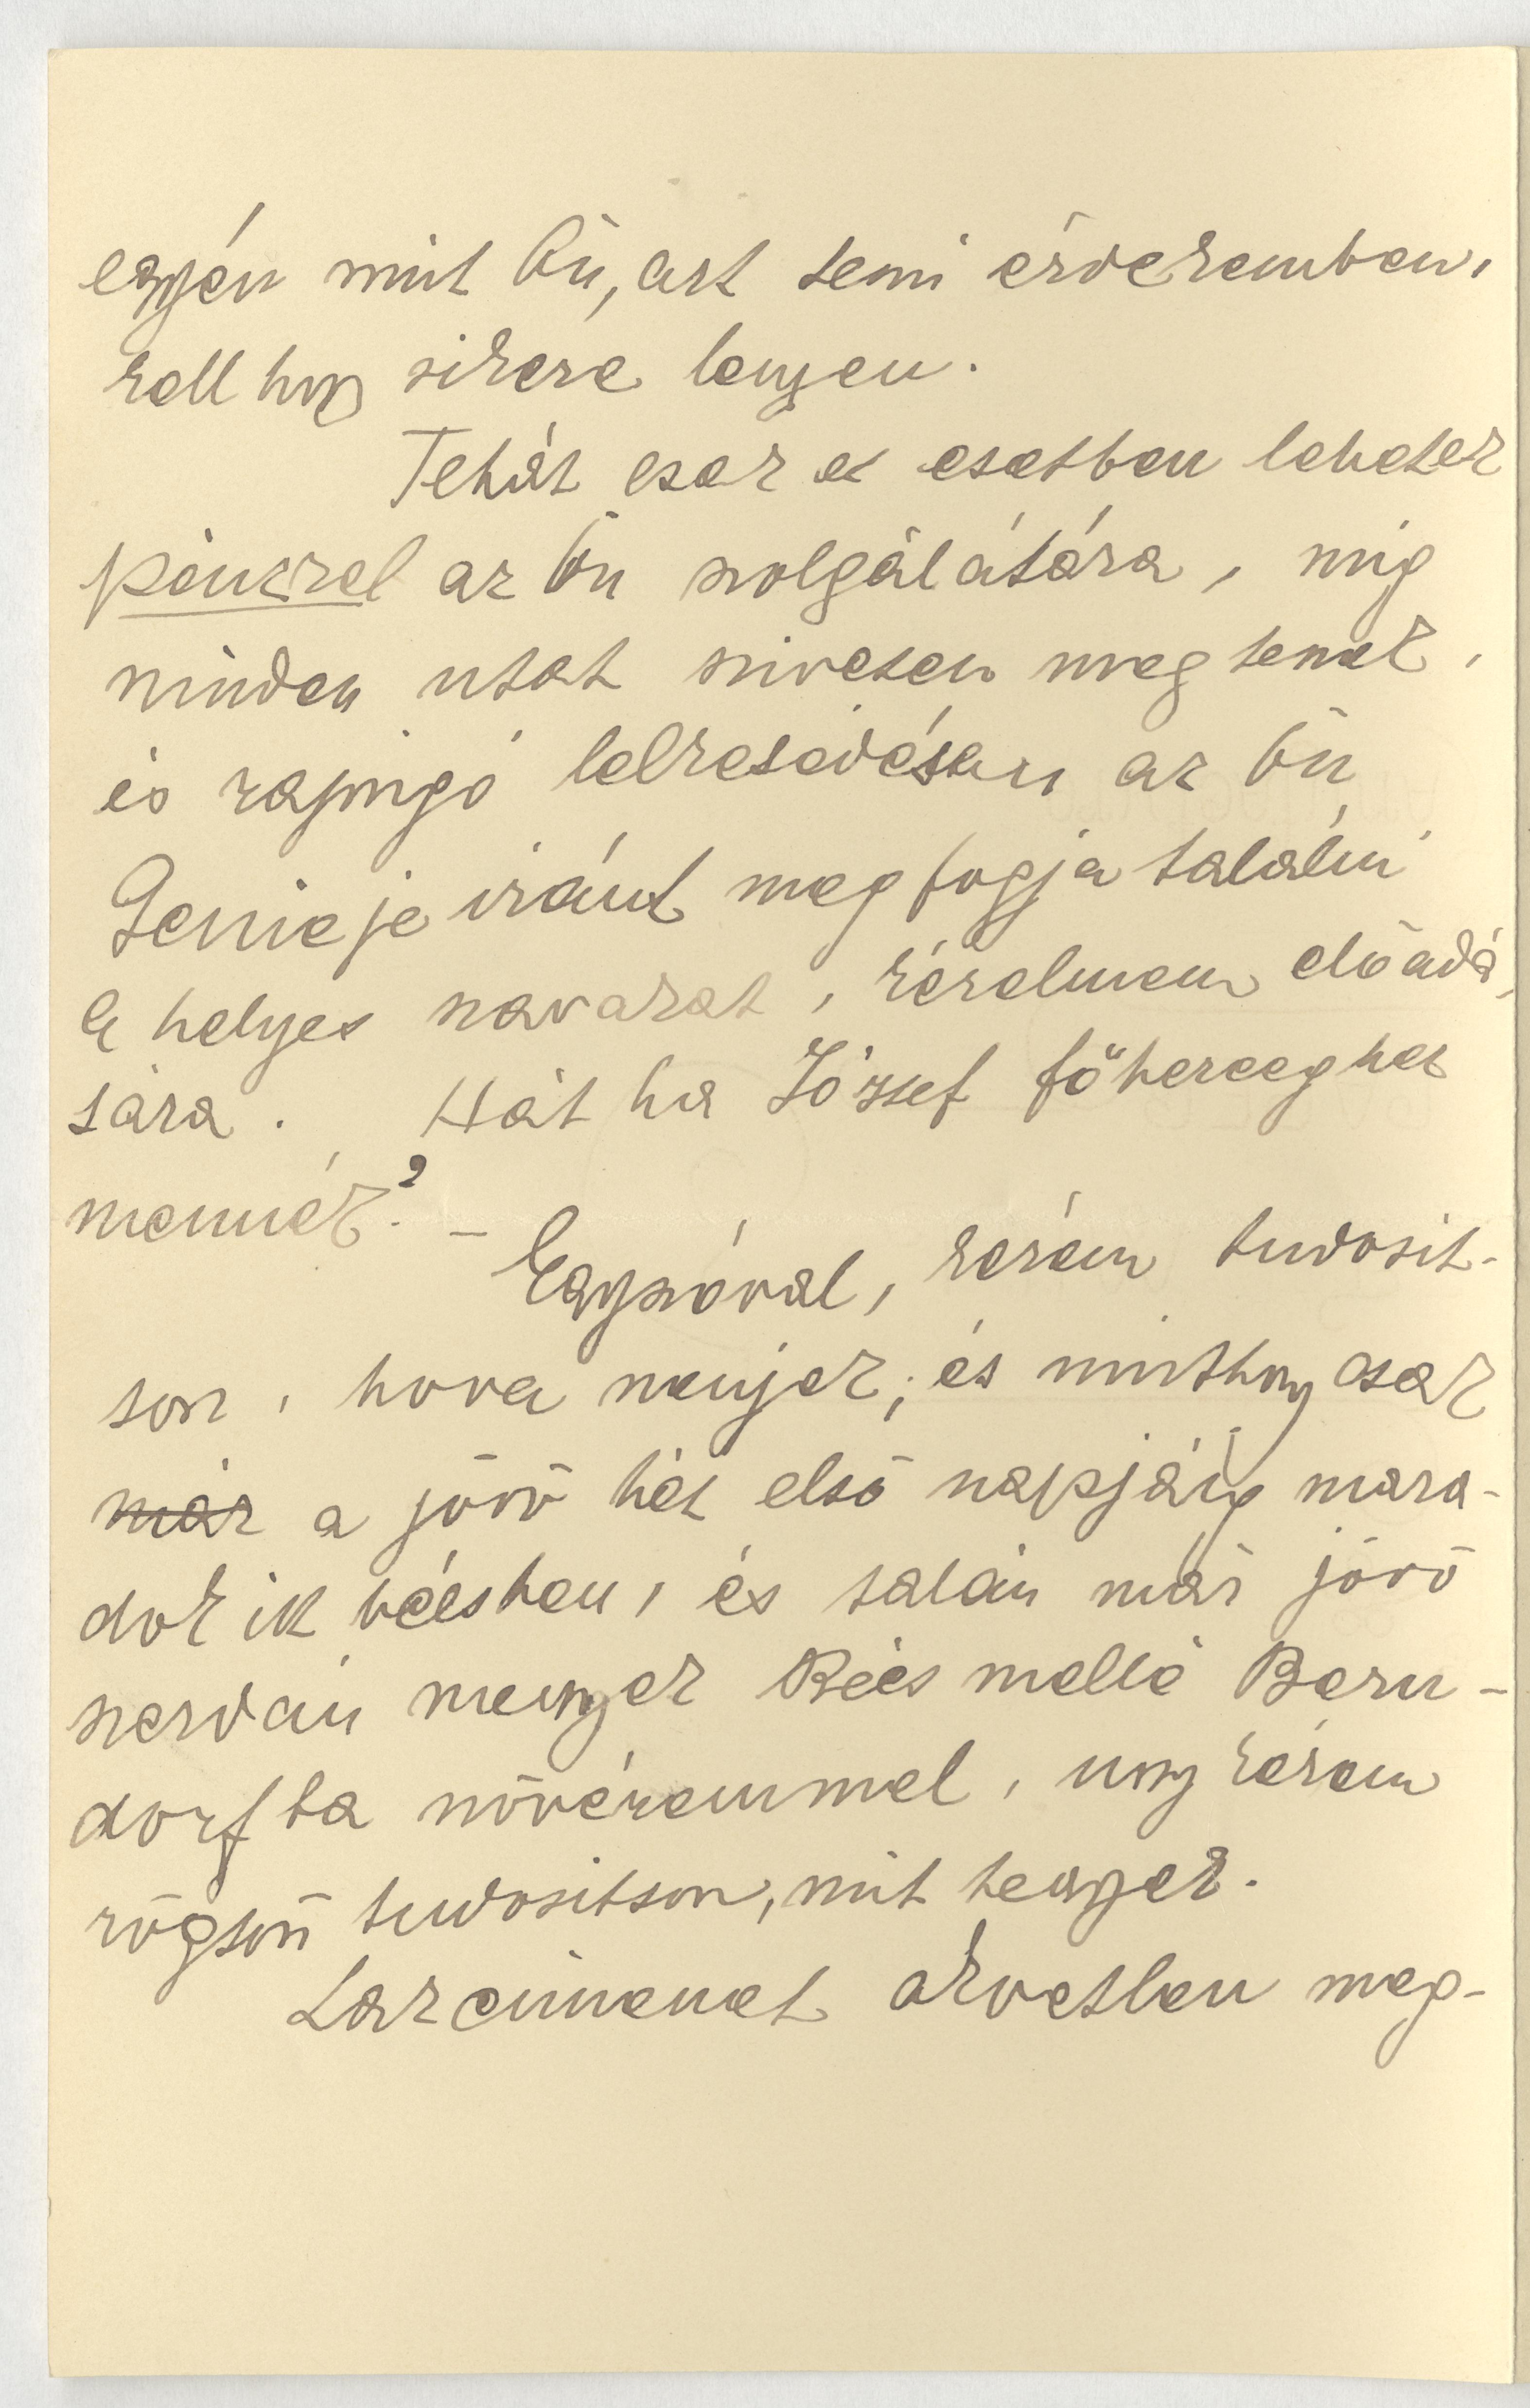 egyén mint Ön, azt teszi érdekemben,
kell hogy sikere legyen.
Tehát csak ez esetben lehetek
pénzzel az Ön szolgálatára, mig
minden utat szivesen megteszek,
és rajongó lelkesedésem az Ön
Genieje iránt meg fogja találni
a helyes szavakat, kérelmem előadá-
sára. Hát ha József főherceghez
mennék? –
Egyszóval, kérem tudosit-
son, hova menjek; és minthogy csak
már a jövő hét első napjáig mara-
dok ik bécsben, és talán már jövő
szerdán megyek Bécs mellé Baru-
dorfba nővéremmel, ugy kérem
rögtön tudositson, mit tegyek.
Lazcimemet okvetlen meg-